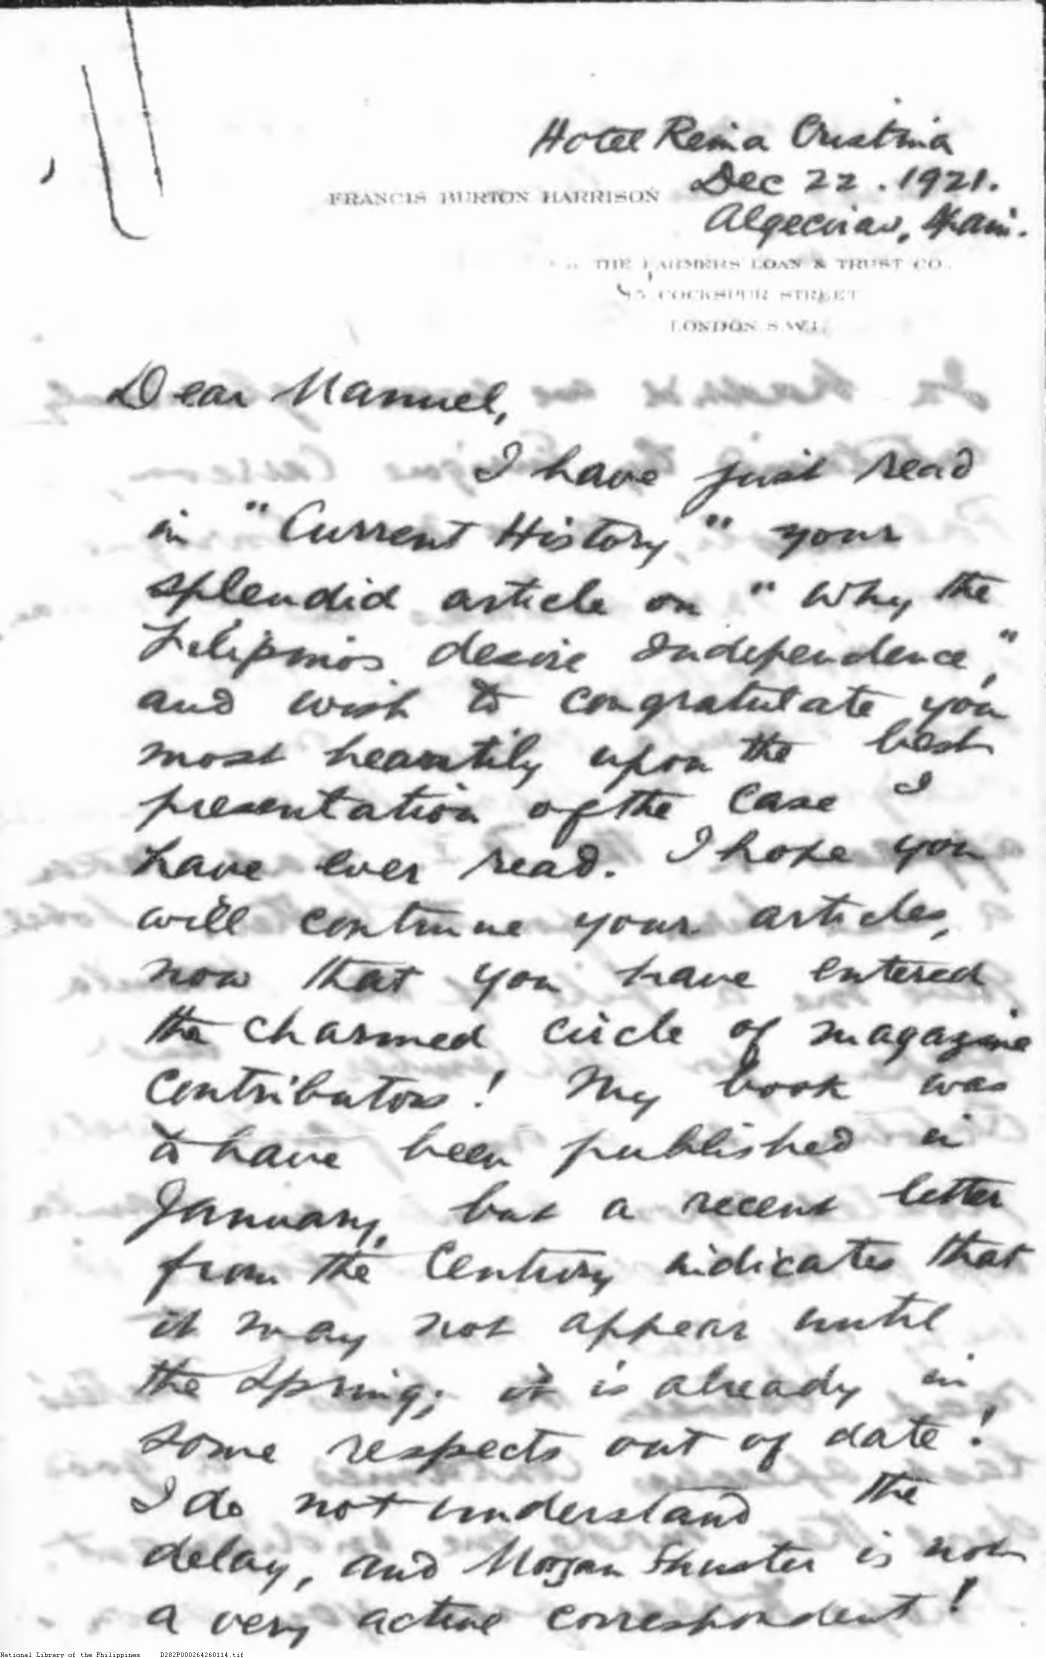 Hotel Reina Cristina
Dec 22. 1921.
FRANCIS BURTON HARRISON
Algeciras, Spain.
THE FARMERS LOAN & TRUST CO.
COCKSPUR STREET
LONDON S.W.1.
Dear Manuel,
I have just read
in "Current History," your
splendid article on "Why the
Filipinos desire Independence,"
and wish to congratulate you
most heartily upon the best
presentation of the case I
have ever read. I hope you
will continue your articles,
now that you have entered
the charmed circle of magazine
contributors! My book was
to have been published in
January, but a recent letter
from the Century indicates that
it may not appear until
the Spring; it is already in
some respects out of date!
I do not understand the
delay, and Morgan Shuster is not
a very active correspondent!
National Library of the Philippines D282P000264260114.tif